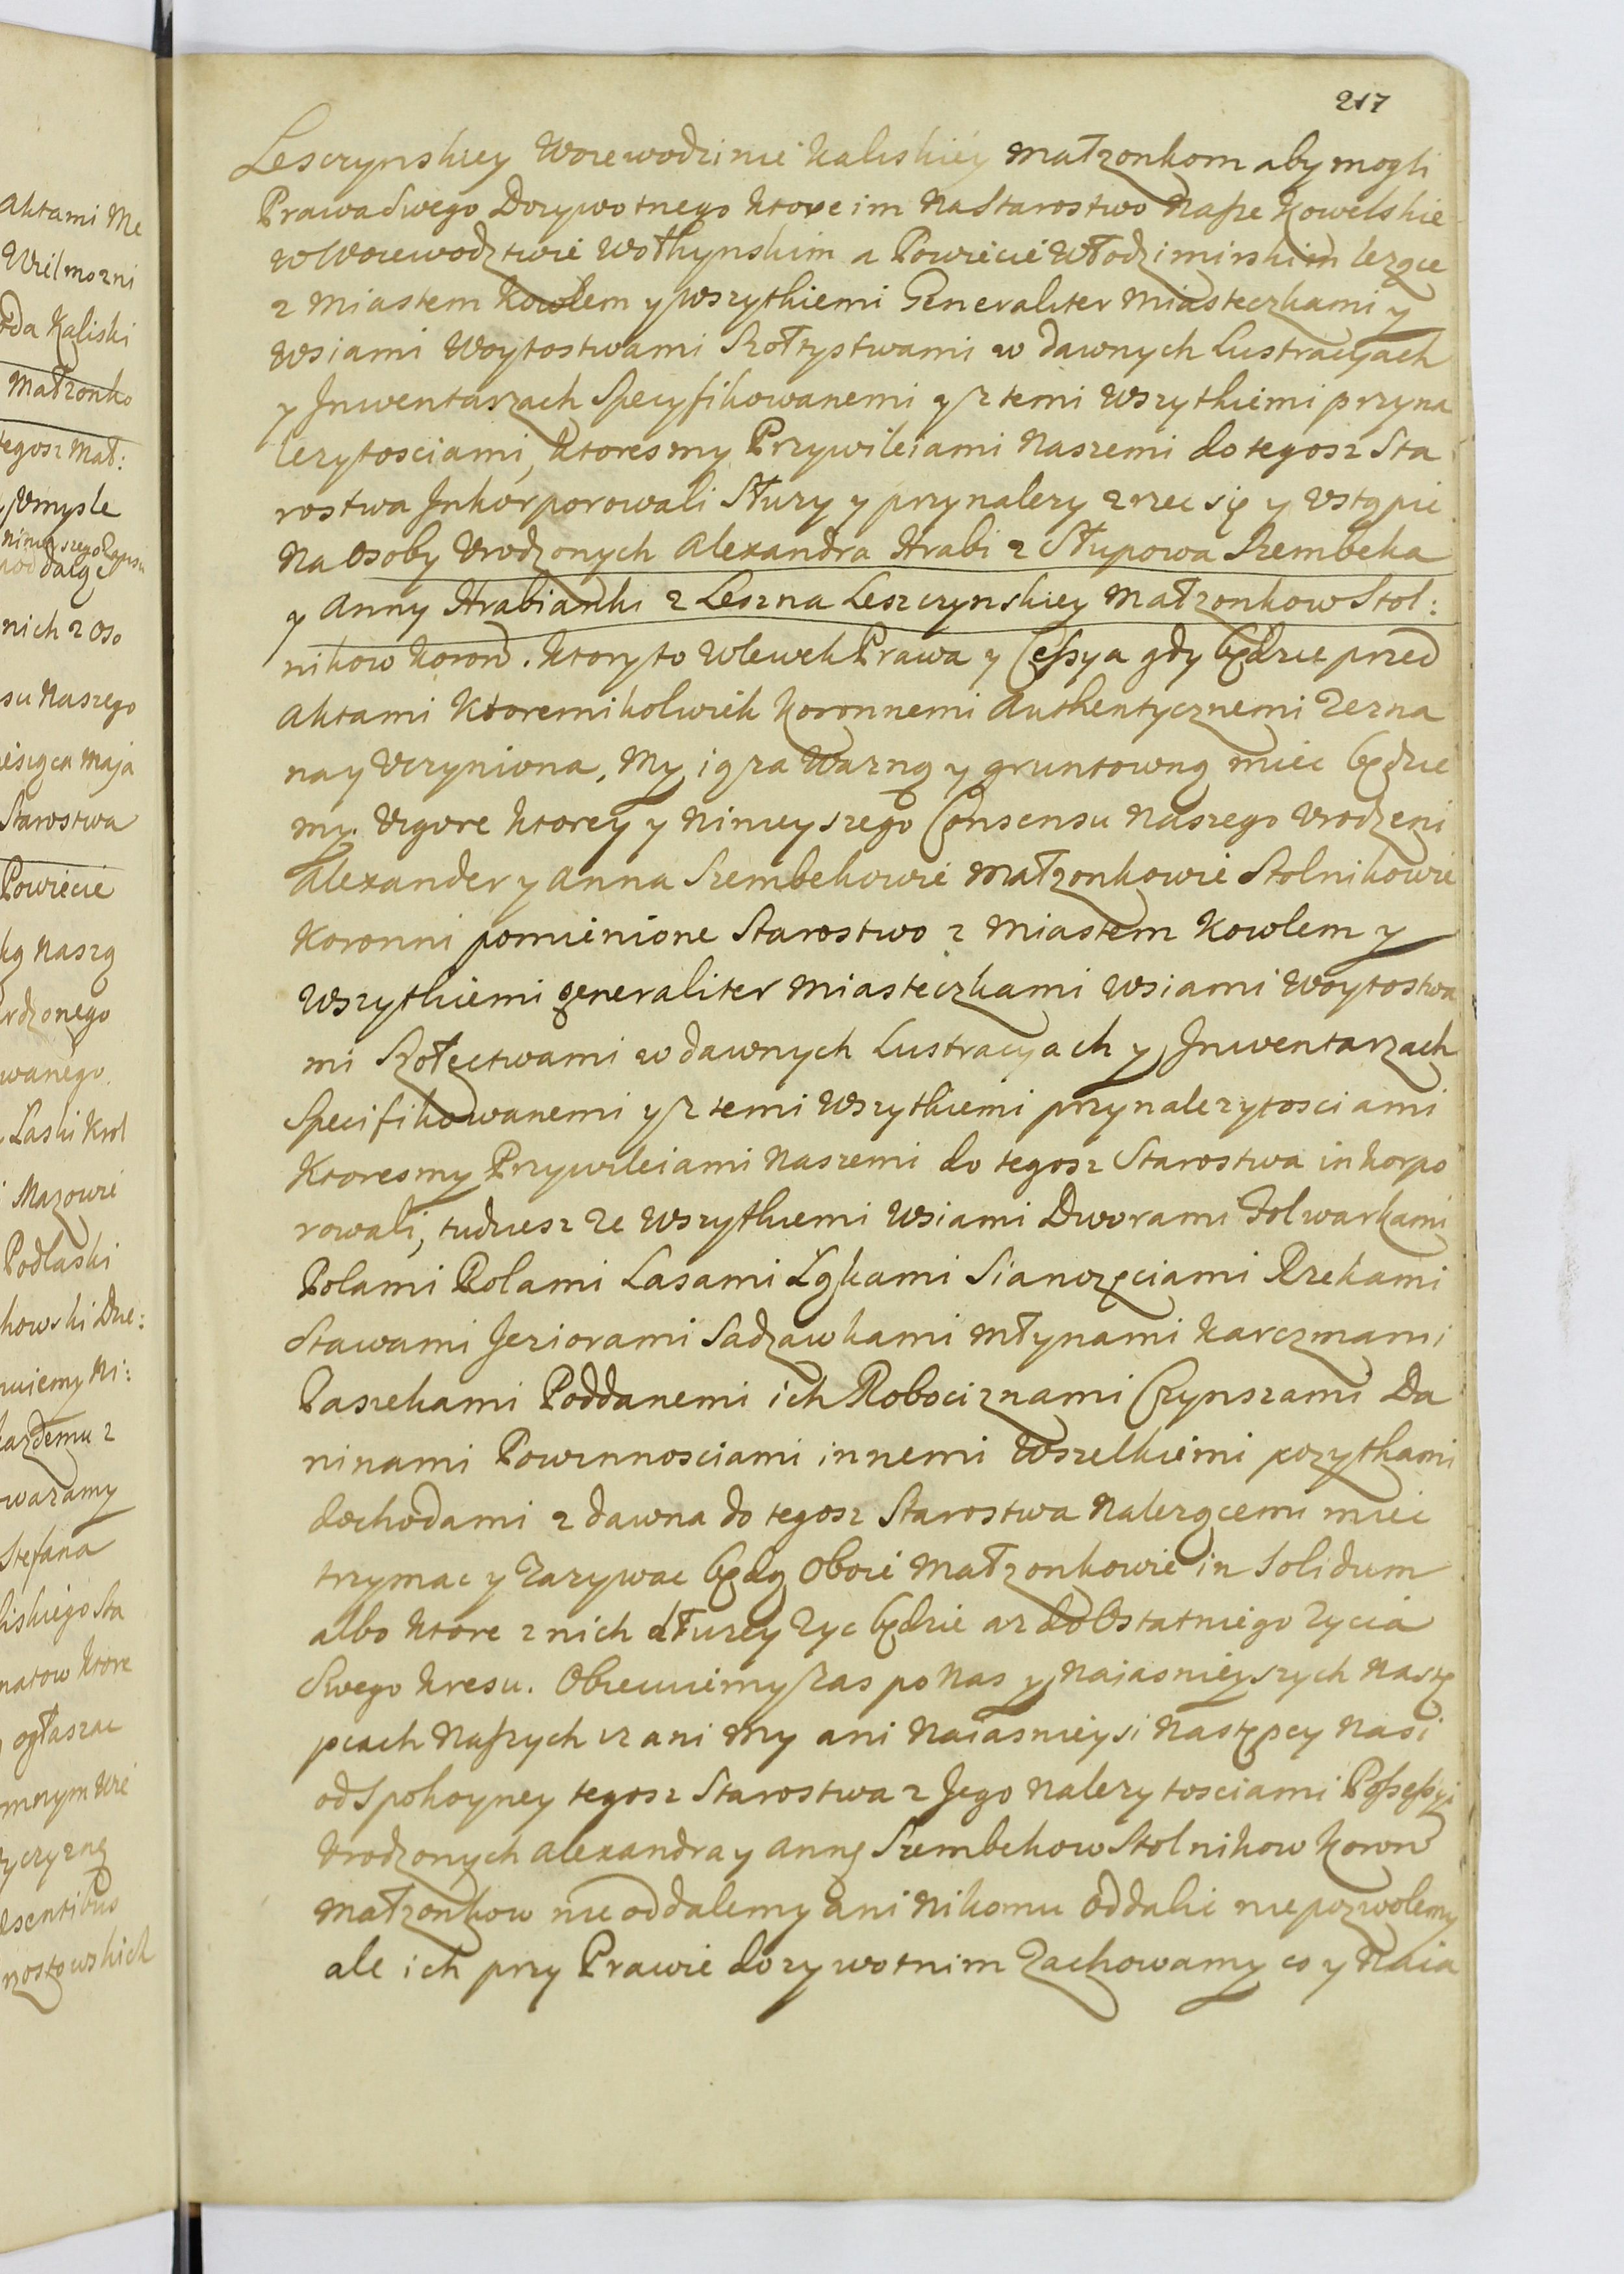 217
Lesczynskiey Woiewodzinie Kaliskiey małzonkom aby mogli
Prawa Swego Dozywotnego ktore im na Starostwo Nasze Kowelskie
w Woiewodztwie Wołhynskim a Powiecie Włodzimirskim lezące
z Miastem Kowlem y wszytkiemi Generaliter Miasteczkami y
Wsiami Woytostwami Szołtystwami w dawnych Lustracyach
y Jnwentarzach Specyfikowanemi y z temi wszytkiemi przyna
lezytosciami, ktoresmy Przywileiami Naszemi do tegosz Sta
rostwa Jnkorporowali Słuzy y przynalezy zrzec się y Vstąpic
Na Osoby Vrodzonych Alexandra Hrabi z Słupowa Szembeka
y Anny Hrabianki z Leszna Leszczynskiey Małzonkow Stol:
nikow Koron. Ktoryto Wlewek Prawa y Cessya gdy będzie przed
Aktami Ktoremikolwiek Koronnemi Authentycznemi Zezna
na y Vczyniona, My ią za Wazną y gruntowną miec będzie
my. Vigore ktorey y Ninieyszego Consensu Naszego Vrodzeni
Alexander y Anna Szembekowie Małzonkowie Stolnikowie
Koronni pomienione Starostwo z Miastem Kowlem y
Wszytkiemi generaliter Miasteczkami Wsiami Woytostwa
mi Szołectwami w dawnych Lustracyach y Jnwentarzach
Specifikowanemi y z temi Wszytkiemi przynalezytosciami
Ktoresmy Przywileiami Naszemi do tegosz Starostwa inkorpo
rowali, tudziesz ze Wszytkiemi Wsiami Dworami Folwarkami
Polami Rolami Lasami Łąkami Sianozęciami Rzekami
Stawami Jeziorami Sadzawkami Młynami Karczmami
Pasiekami Poddanemi ich Robociznami Czynszami Da
ninami Powinnosciami innemi Wszelkiemi pozytkami
dochodami z dawna do tegosz Starostwa Nalezącemi miec
trzymac y Zazywac będą Oboie Małzonkowie in Solidum
albo ktore z nich dłuzey Zyc będzie az do Ostatniego Zycia
Swego kresu. Obiecuiemy zas po Nas y Naiasnieyszych Nastę
pcach Naszych iz ani My ani Naiasnieysi Następcy Nasi
od Spokoyney tegosz Starostwa z Jego Nalezytosciami Possessyi
Vrodzonych Alexandra y Annę Szembekow Stolnikow Koron
Małzonkow nie oddalemy ani Nikomu Oddalic nie pozwolemy
ale ich przy Prawie dozywotnim Zachowamy co y Naia